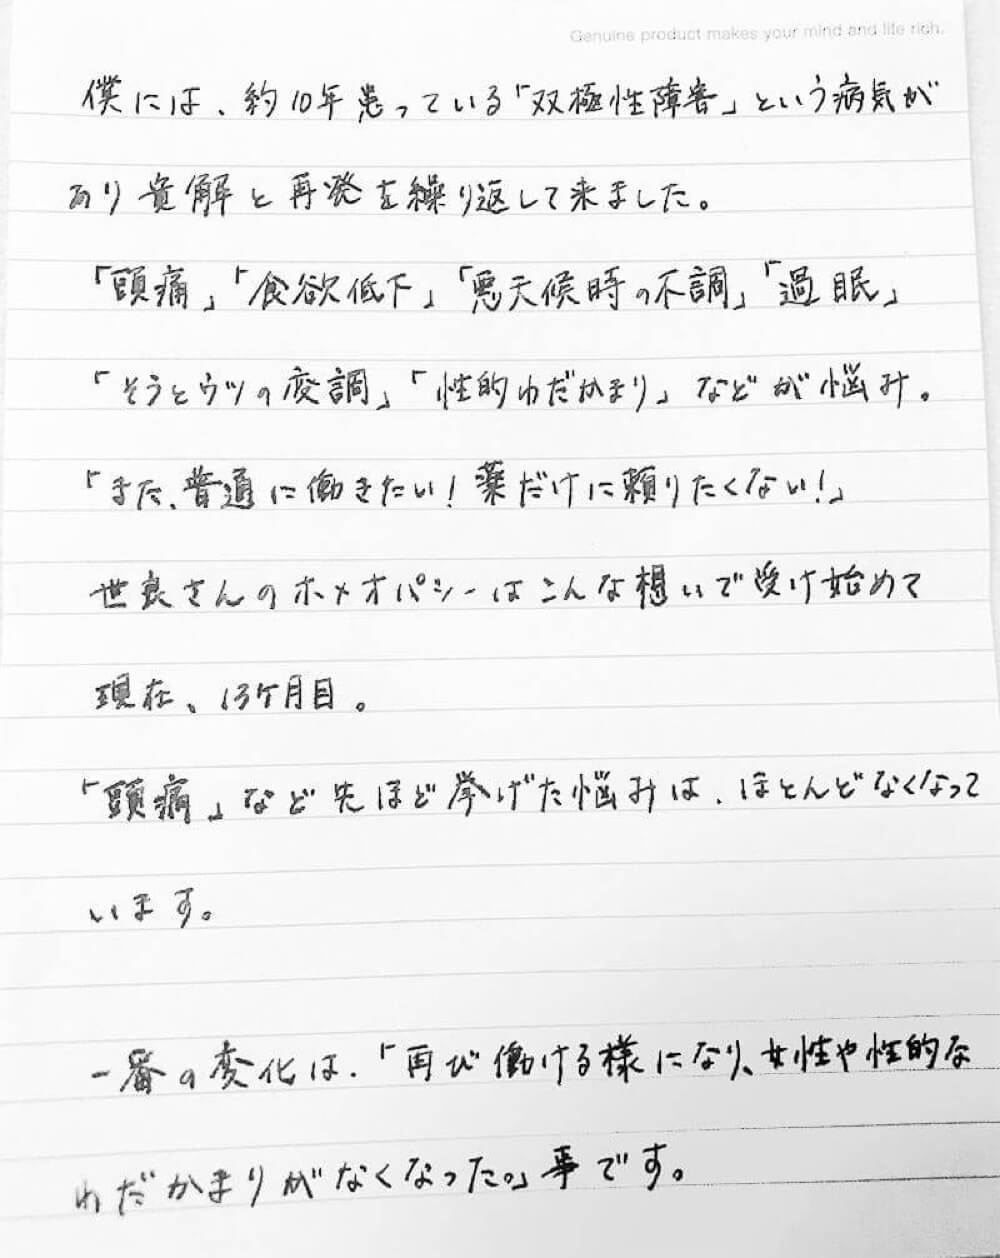 Genuine product makes your mind and life rich.
僕には、約10年患っている「双極性障害」という病気が
あり寛解と再発を繰り返して来ました。
「頭痛」「食欲低下」「悪天候時の不調」「過眠」
「そうとウツの変調」「性的わだかまり」などが悩み。
「また、普通に働きたい!薬だけに頼りたくない!」
世良さんのホメオパシーはこんな想いで受け始めて
現在、13ケ月目。
「頭痛」など先ほど挙げた悩みは、ほとんどなくなって
います。
一番の変化は、「再び働ける様になり、女性や性的な
わだかまりがなくなった。」事です。